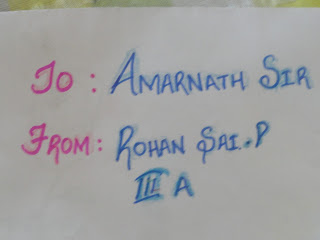 To: Amarnath Sir
From: Rohan Sai.P
III A